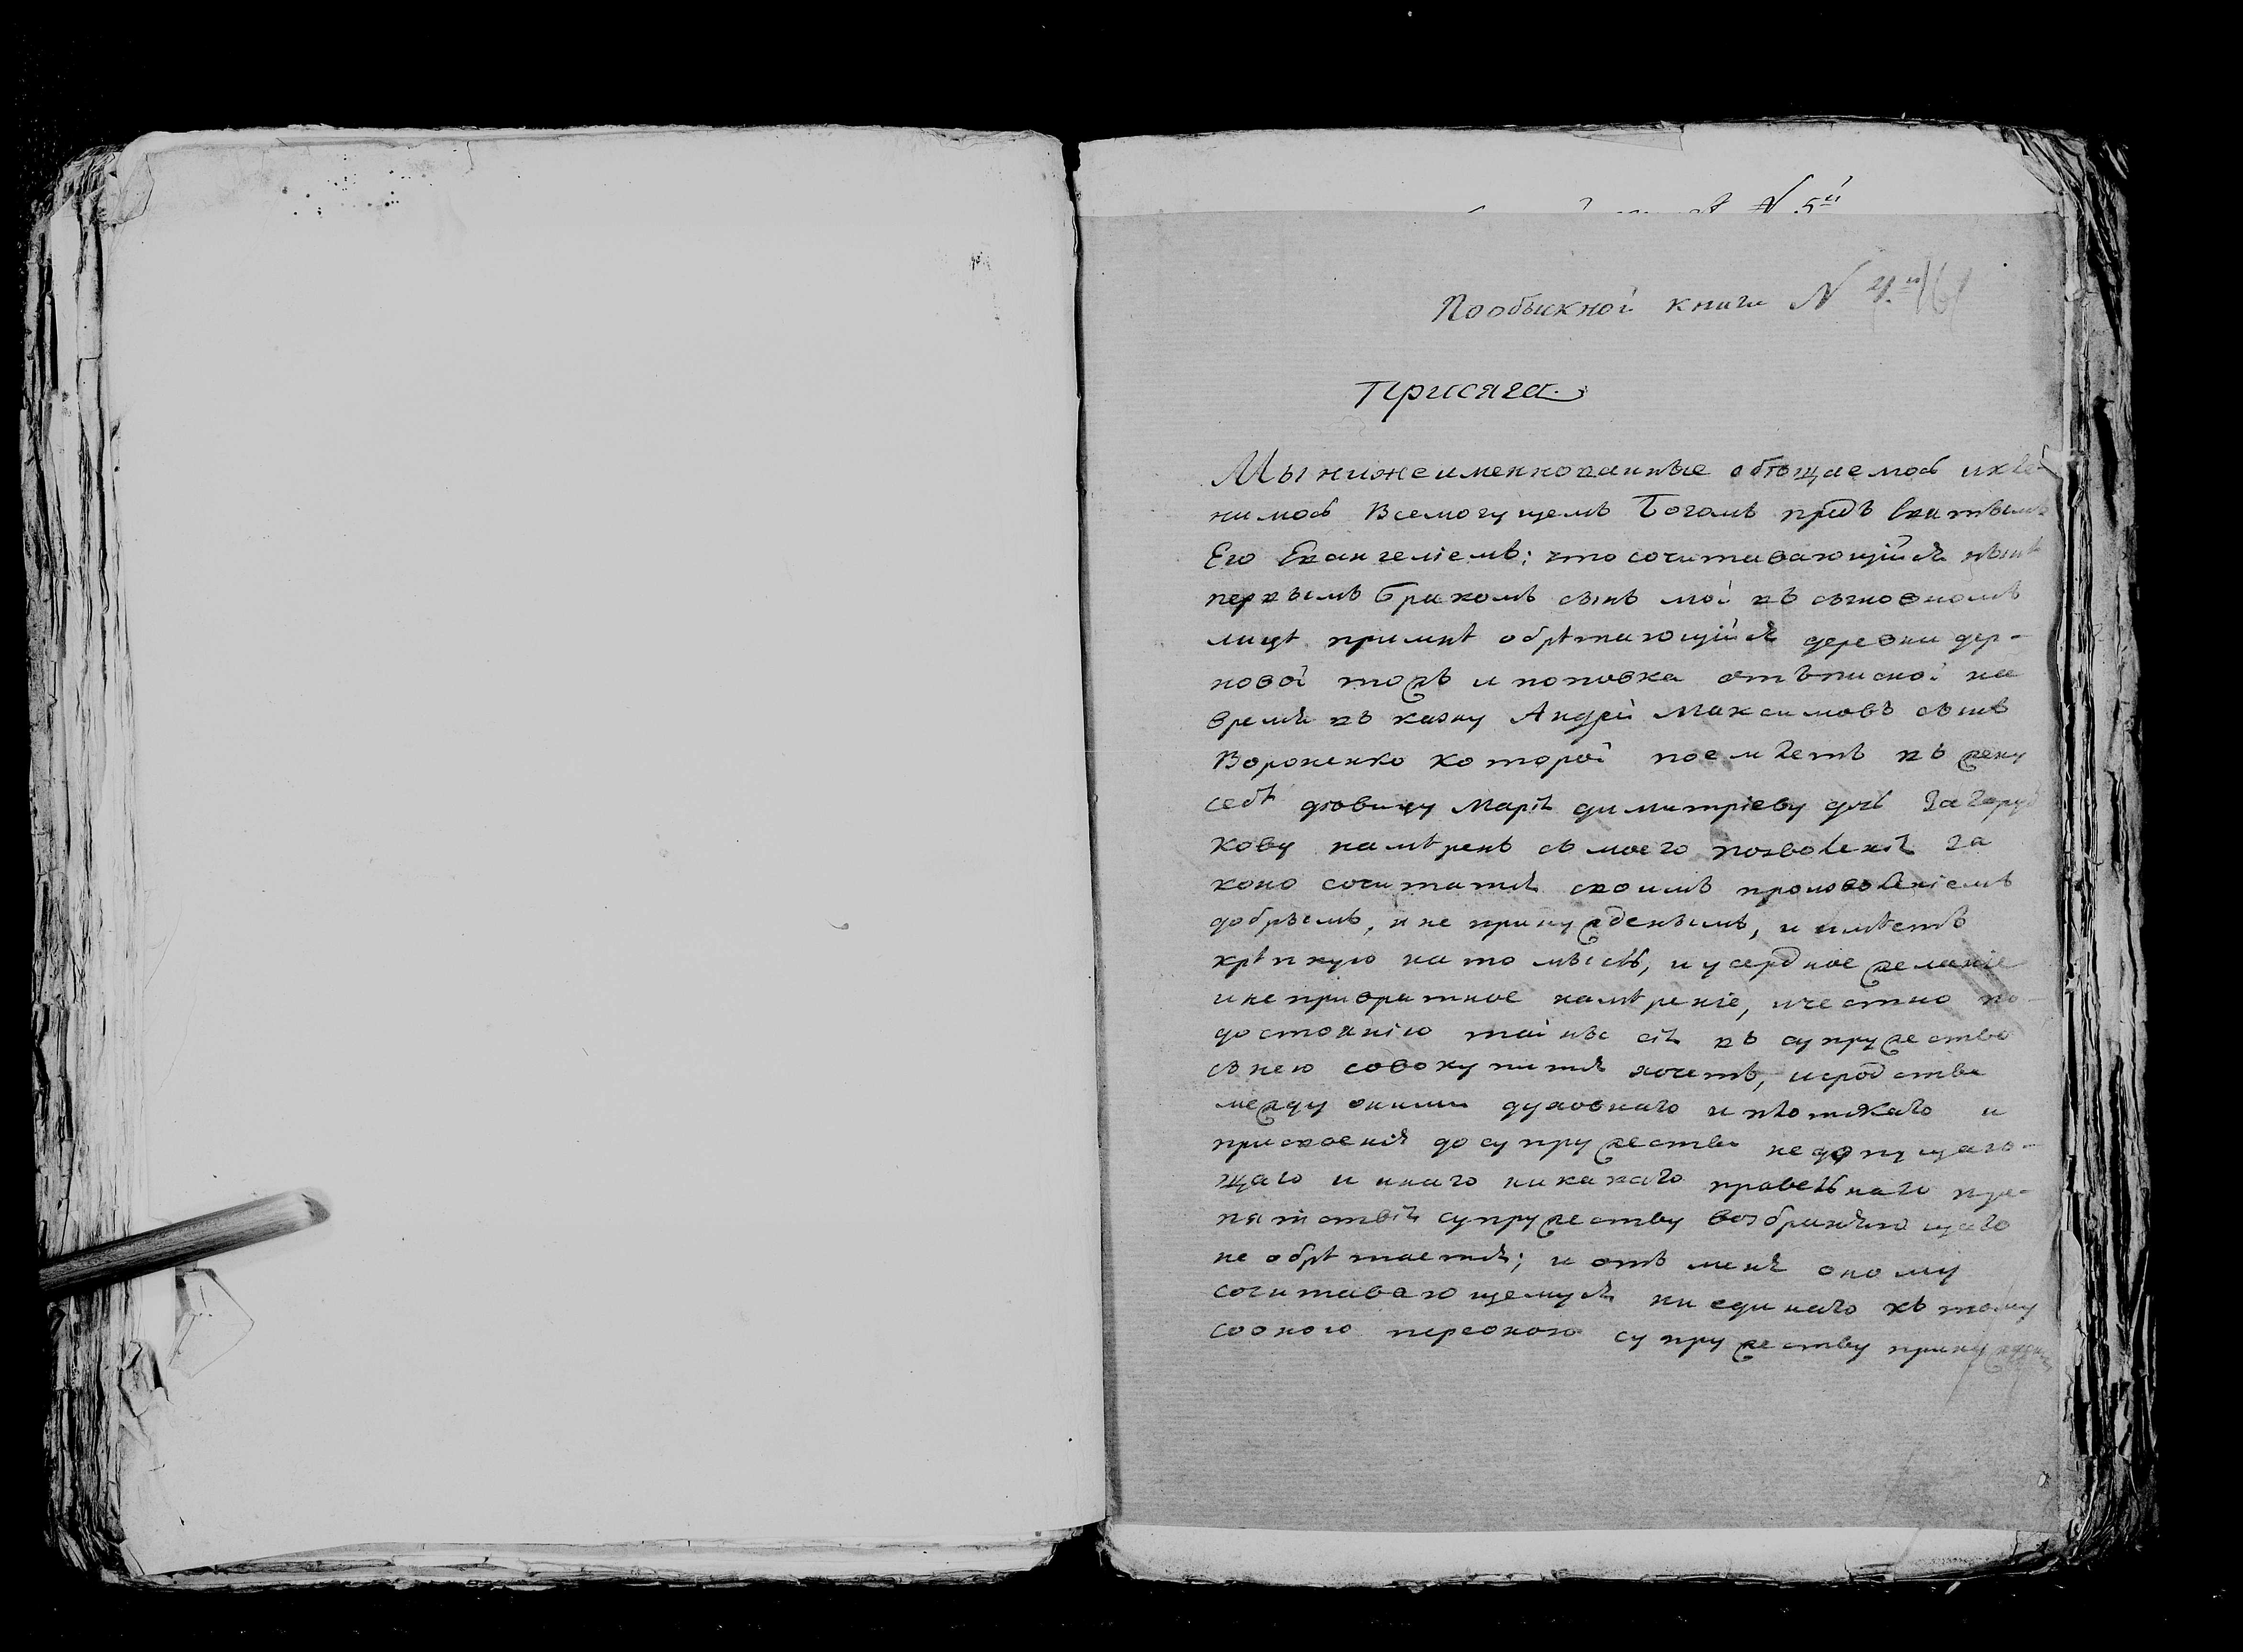 N 5й
Пообыкной книги N 4й 161
Присяга
Мы нижеименнованные обѣщаемось икле-
нимось Всемогущемъ Богомъ предъ Святымъ
Его Евангелiемъ: что сочитавающiйся нынѣ
первымъ бракомъ сынъ мой въ сыновномъ
лицѣ примнѣ обрѣтающiйся деревни дер-
новой тожъ и поповка отъписной на
время въ казну Андрей Максимовъ сынъ
Вороненко которой поемлетъ въ жену
себѣ дѣовицу Марiя димитрiеву дочь
кову намѣренъ съ моего позволенiя за
коно сочитатися своимъ произволенiемъ
добрымъ, и не принужденымъ, и имѣетъ
крѣпкую на то мысль, и усердное желанiе
и не привратное намѣренiе, и честно по-
достоянiю тайны сiя въ супружество
съ нею совокупится хочетъ, и сродства
между оними духовнаго и плотскаго и
присвоенiя до супружества недопущаю-
щаго и инаго никакаго правелнаго пре-
пятствiя супружеству возбраняющаго
не обрѣтается; и отъ меня оному
сочитавающемуся ни единаго къ тому
сооною персоною супружеству